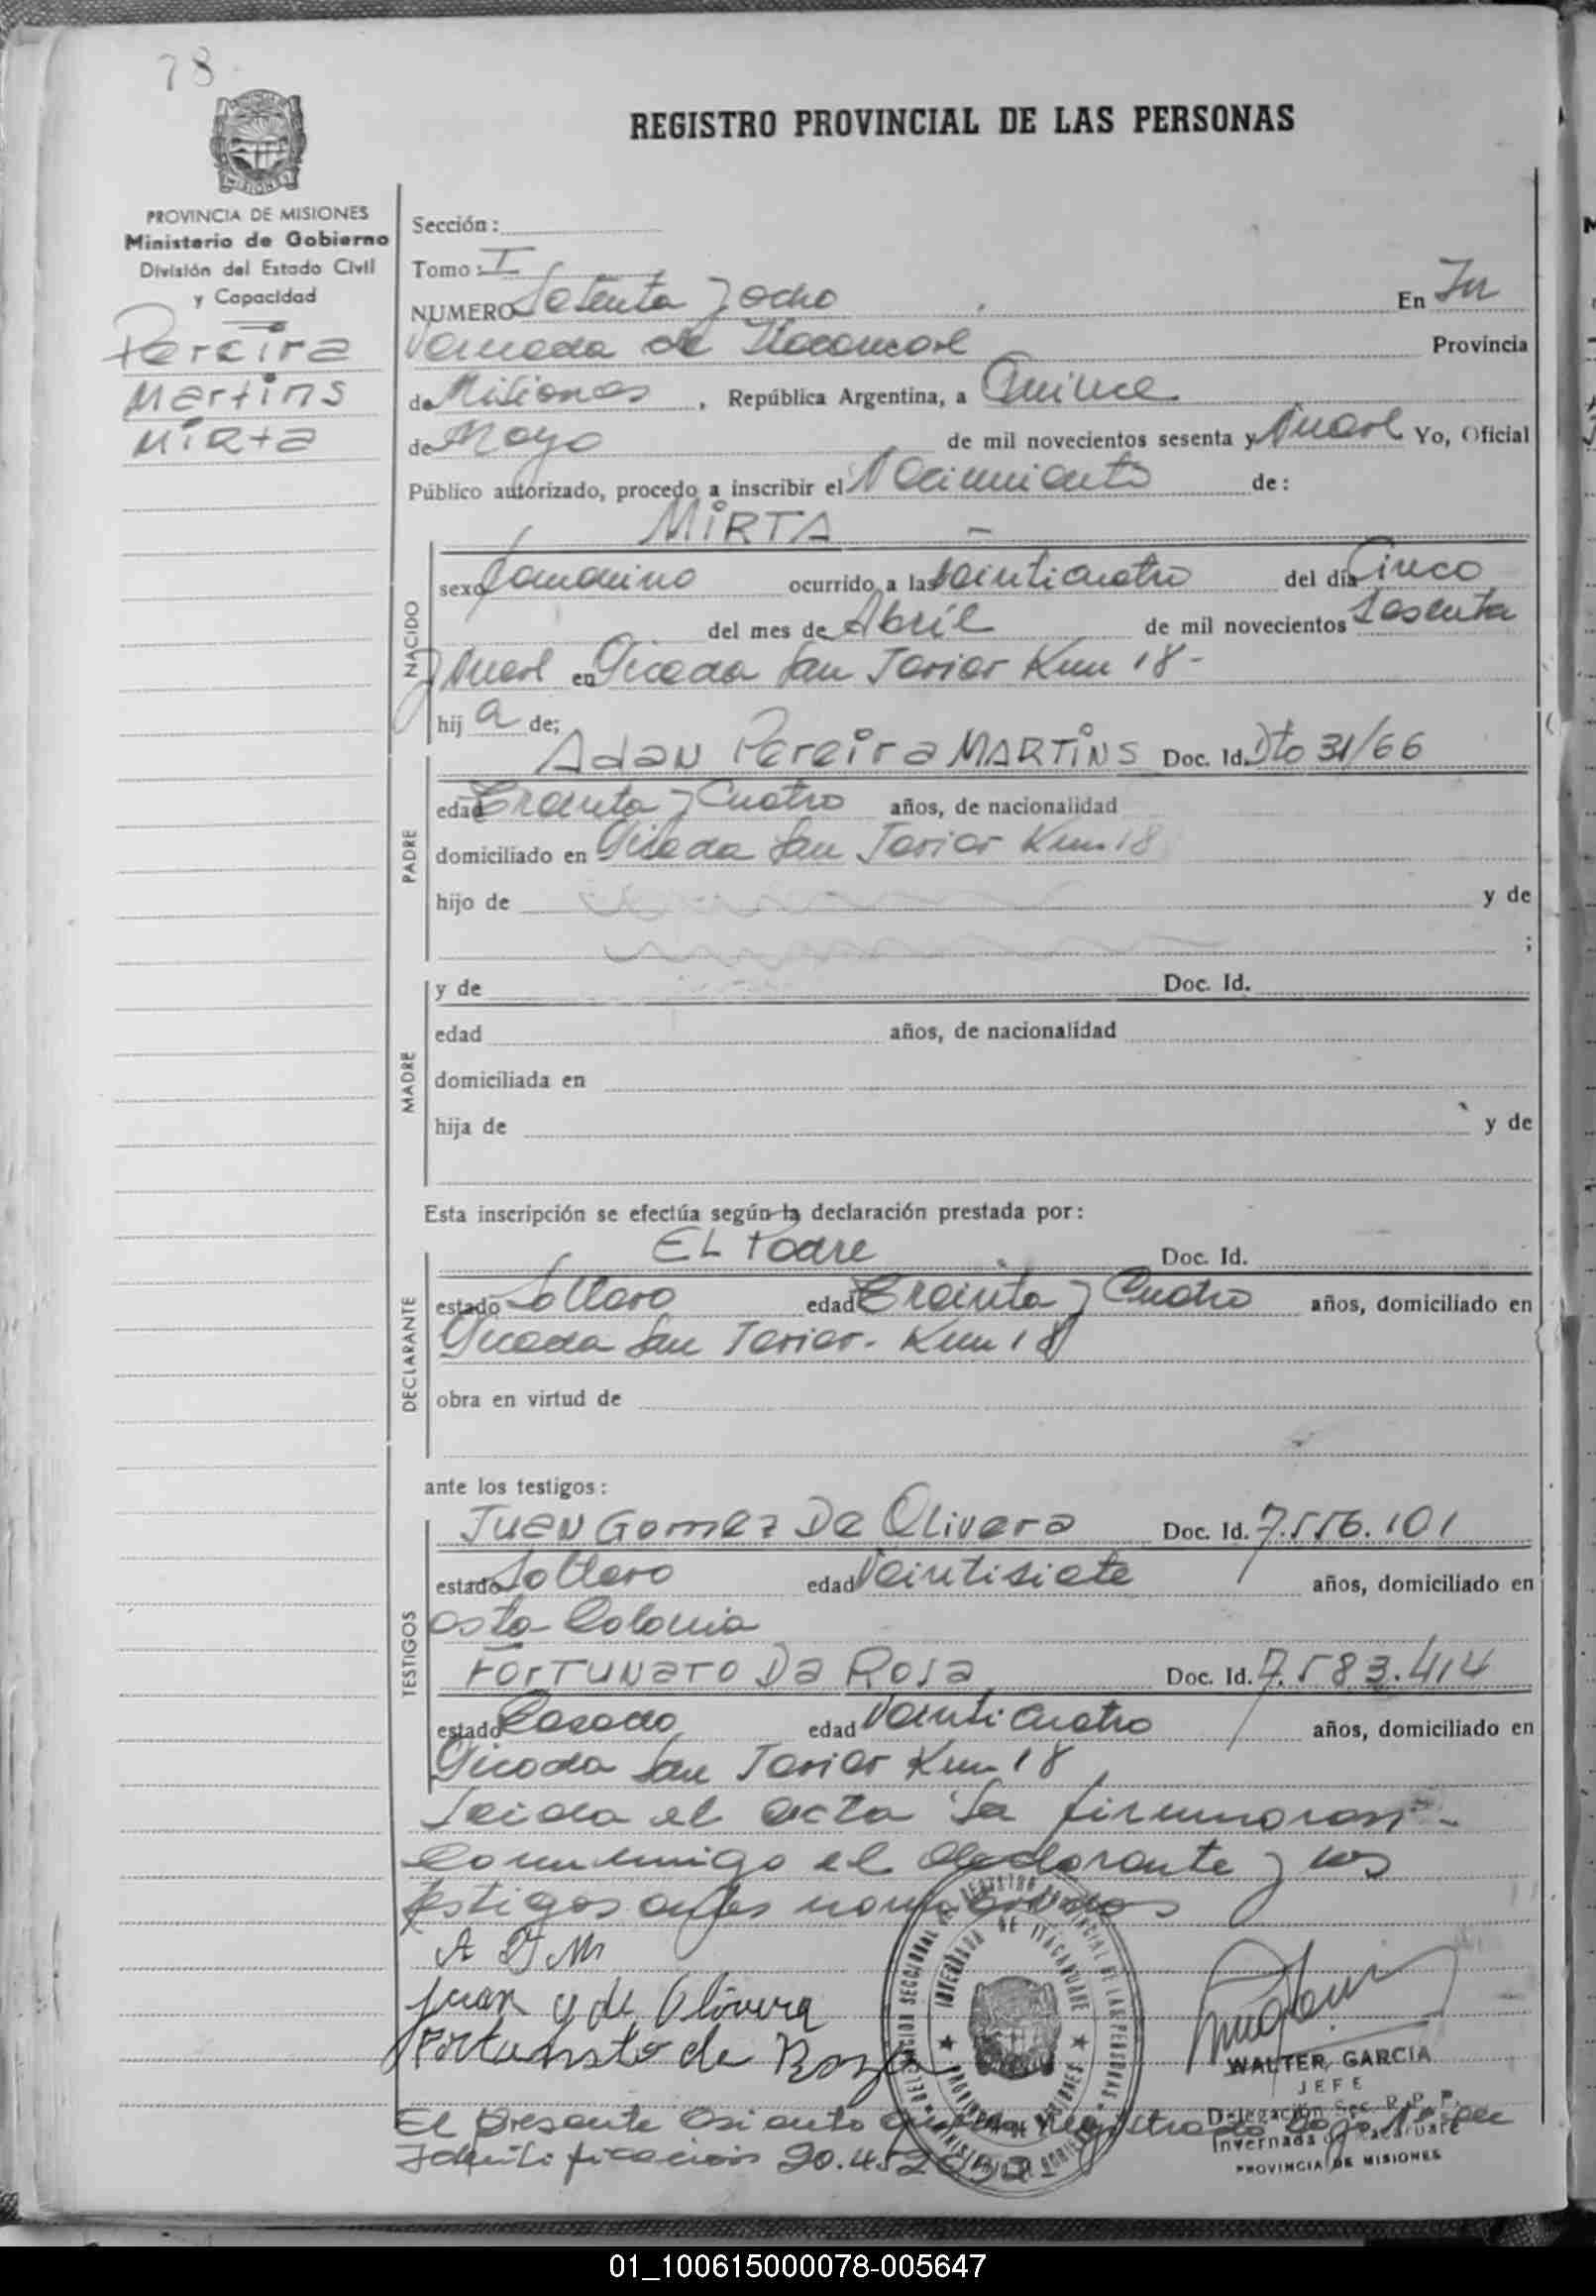 78
REGISTRO PROVINCIAL DE LAS PERSONAS
PROVINCIA DE MISIONES
Ministerio de Gobierno
División del Estado Civil
y Capacidad
Pereira
Martins
Mirta
Sección:
Tomo: I
NUMERO Setenta y ocho En In
vernada de Itacaruaré Provincia
de Misiones, República Argentina, a Quince
de Mayo de mil novecientos sesenta y Nueve Yo, Oficial
Público autorizado, procedo a inscribir el Nacimiento de:
MIRTA
NACIDO
sexo femenino ocurrido a las veinticuatro del día Cinco
del mes de Abril de mil novecientos sesenta
y Nueve en Picada San Javier Km 18-
hij a de;
PADRE
Adan Pereira MARTINS Doc. Id. Dto 31/66
edad Treinta y Cuatro años, de nacionalidad
domiciliado en Picada San Javier Km 18
hijo de y de
;
MADRE
y de Doc. Id.
edad años, de nacionalidad
domiciliada en
hija de y de
Esta inscripción se efectúa según la declaración prestada por:
DECLARANTE
EL Padre Doc. Id.
estado Soltero edad Treinta y Cuatro años, domiciliado en
Picada San Javier. Km 18
obra en virtud de
ante los testigos:
TESTIGOS
Juan Gomez De Olivera Doc. Id. 7.556.101
estado Soltero edad Veintisiete años, domiciliado en
esta Colonia
Fortunato Da Rosa Doc. Id. 7.583.414
estado Casado edad Veinticuatro años, domiciliado en
Picada San Javier Km 18
Leida el acta la firmaron
conmigo el declarante y los
testigos antes nombrados
Juan g de Olivera
Fortunato de Roza
DELEGACION SECCIONAL DEL REGISTRO PROVINCIAL DE LAS PERSONAS
INVERNADA DE ITACARUARE
PROVINCIA DE MISIONES
WALTER GARCIA
JEFE
Delegación Sec. R. P. P.
Invernada de Itacaruaré
PROVINCIA DE MISIONES
El presente asiento queda registrado bajo Nº de
Identificacion
01_100615000078-005647